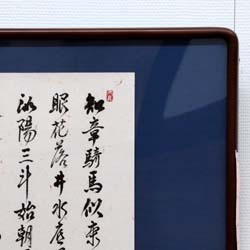 知章騎馬似乘
眼花落井水底
汝陽三斗始朝